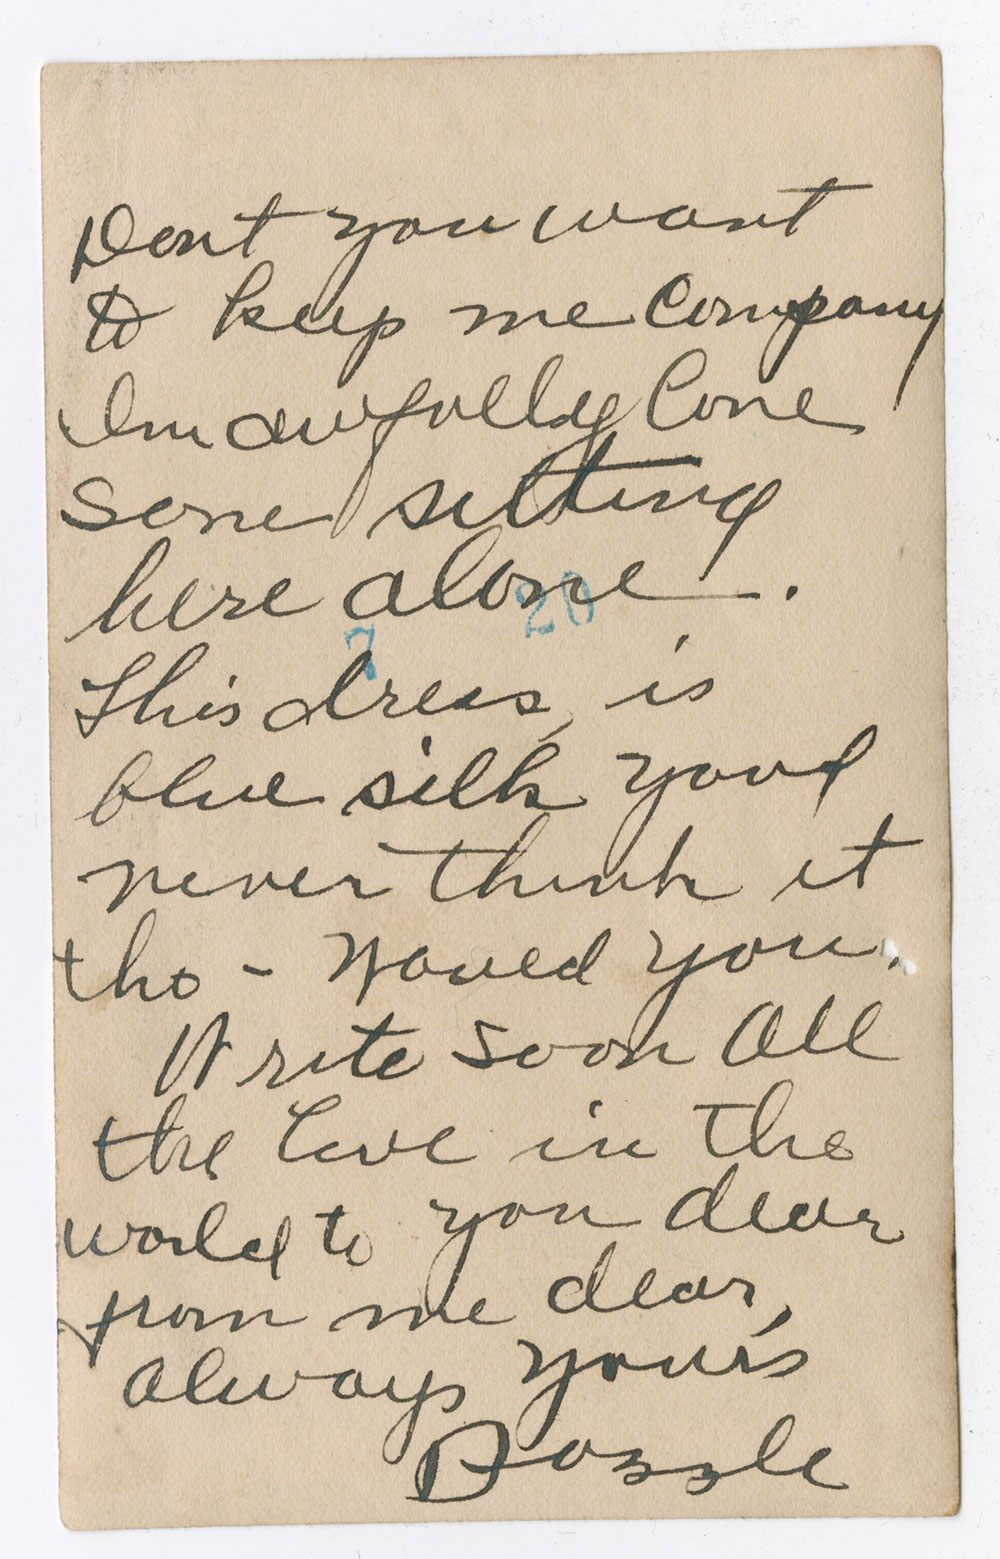 Dont you want
to keep me Company
Im awfully lone
some sitting
here alone.
7 20
This dress is
blue silk youd
never think it
tho - Would you.
Write soon All
the love in the
world to you dear
from me dear,
always your's
Dazzle